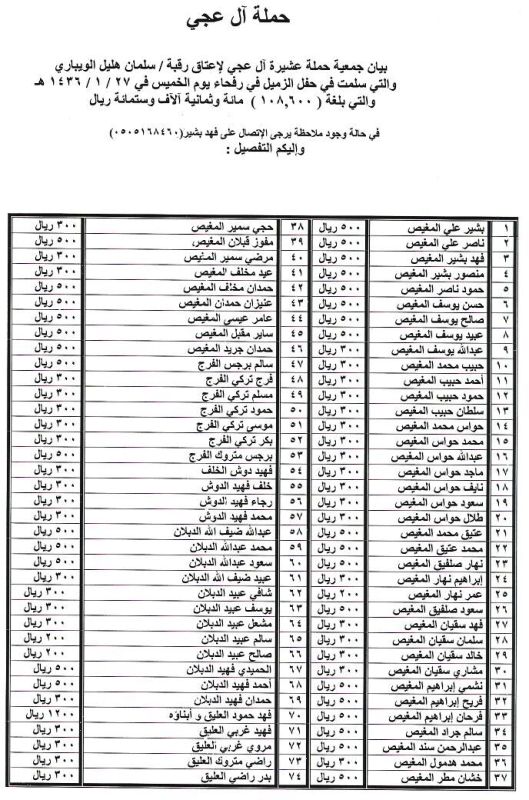 حملة آل عجي
بيان جمعية حملة عشيرة آل عجي لإعتاق رقبة / سلمان هليل الويباري
والتي سلمت في حفل الزميل في رفحاء يوم الخميس في ٢٧ / ١ / ١٤٣٦ هـ
والتي بلغة ( ١٠٨,٦٠٠ ) مائة وثمانية آلاف وستمائة ريال
في حالة وجود ملاحظة يرجى الإتصال على فهد بشير(٠٥٠٥١٦٨٤٦٠)
وإليكم التفصيل :
١ بشير علي المغيص ٥٠٠ ريال ٣٨ حجي سمير المغيص ٣٠٠ ريال
٢ ناصر علي المغيص ٥٠٠ ريال ٣٩ مفوز قبلان المغيص ٥٠٠ ريال
٣ فهد بشير المغيص ٥٠٠ ريال ٤٠ مرضي سمير المغيص ٣٠٠ ريال
٤ منصور بشير المغيص ٥٠٠ ريال ٤١ عيد مخلف المغيص ٣٠٠ ريال
٥ حمود ناصر المغيص ٥٠٠ ريال ٤٢ حمدان مخلف المغيص ٥٠٠ ريال
٦ حسن يوسف المغيص ٥٠٠ ريال ٤٣ عنيزان حمدان المغيص ٥٠٠ ريال
٧ صالح يوسف المغيص ٥٠٠ ريال ٤٤ عامر عيسى المغيص ٣٠٠ ريال
٨ عبيد يوسف المغيص ٥٠٠ ريال ٤٥ ساير مقبل المغيص ٥٠٠ ريال
٩ عبدالله يوسف المغيص ٣٠٠ ريال ٤٦ حمدان جريد المغيص ٥٠٠ ريال
١٠ حبيب محمد المغيص ٣٠٠ ريال ٤٧ سالم برجس الفرج ٥٠٠ ريال
١١ أحمد حبيب المغيص ٣٠٠ ريال ٤٨ فرج تركي الفرج ٣٠٠ ريال
١٢ حمود حبيب المغيص ٣٠٠ ريال ٤٩ مسلم تركي الفرج ٣٠٠ ريال
١٣ سلطان حبيب المغيص ٣٠٠ ريال ٥٠ حمود تركي الفرج ٣٠٠ ريال
١٤ حواس محمد المغيص ٣٠٠ ريال ٥١ موسى تركي الفرج ٣٠٠ ريال
١٥ محمد حواس المغيص ٣٠٠ ريال ٥٢ بكر تركي الفرج ٣٠٠ ريال
١٦ عبدالله حواس المغيص ٣٠٠ ريال ٥٣ برجس متروك الفرج ٣٠٠ ريال
١٧ ماجد حواس المغيص ٣٠٠ ريال ٥٤ فهيد دوش الخلف ٣٠٠ ريال
١٨ نايف حواس المغيص ٣٠٠ ريال ٥٥ خلف فهيد الدوش ٣٠٠ ريال
١٩ سعود حواس المغيص ٣٠٠ ريال ٥٦ رجاء فهيد الدوش ٣٠٠ ريال
٢٠ طلال حواس المغيص ٣٠٠ ريال ٥٧ محمد فهيد الدوش ٣٠٠ ريال
٢١ عتيق محمد المغيص ٥٠٠ ريال ٥٨ عبدالله ضيف الله الدبلان ٥٠٠ ريال
٢٢ محمد عتيق المغيص ٥٠٠ ريال ٥٩ محمد عبدالله الدبلان ٥٠٠ ريال
٢٣ نهار صلفيق المغيص ٥٠٠ ريال ٦٠ سعود عبدالله الدبلان ٥٠٠ ريال
٢٤ إبراهيم نهار المغيص ٣٠٠ ريال ٦١ عبيد ضيف الله الدبلان ٣٠٠ ريال
٢٥ عمر نهار المغيص ٢٠٠ ريال ٦٢ شافي عبيد الدبلان ٣٠٠ ريال
٢٦ سعود صلفيق المغيص ٥٠٠ ريال ٦٣ يوسف عبيد الدبلان ٣٠٠ ريال
٢٧ فهد سقيان المغيص ٣٠٠ ريال ٦٤ مشعل عبيد الدبلان ٢٠٠ ريال
٢٨ سلمان سقيان المغيص ٥٠٠ ريال ٦٥ سالم عبيد الدبلان ٢٠٠ ريال
٢٩ خالد سقيان المغيص ٣٠٠ ريال ٦٦ صالح عبيد الدبلان ٢٠٠ ريال
٣٠ مشاري سقيان المغيص ٣٠٠ ريال ٦٧ الحميدي فهيد الدبلان ٥٠٠ ريال
٣١ نشمي إبراهيم المغيص ٥٠٠ ريال ٦٨ أحمد فهيد الدبلان ٥٠٠ ريال
٣٢ فريح إبراهيم المغيص ٥٠٠ ريال ٦٩ حمدان فهيد الدبلان ٣٠٠ ريال
٣٣ فرحان إبراهيم المغيص ٥٠٠ ريال ٧٠ فهد حمود العليق و أبناؤه ١٢٠٠ ريال
٣٤ سالم جراد المغيص ٥٠٠ ريال ٧١ فهيد غربي العليق ٥٠٠ ريال
٣٥ عبدالرحمن سند المغيص ٥٠٠ ريال ٧٢ مروي غربي العليق ٥٠٠ ريال
٣٦ محمد هدمول المغيص ٣٠٠ ريال ٧٣ راضي متروك العليق ٣٠٠ ريال
٣٧ خشان مطر المغيص ٥٠٠ ريال ٧٤ بدر راضي العليق ٣٠٠ ريال